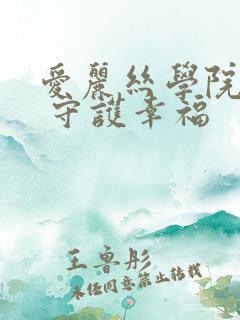 愛麗絲學院
守護幸福
王魯彤
未經同意禁止轉載